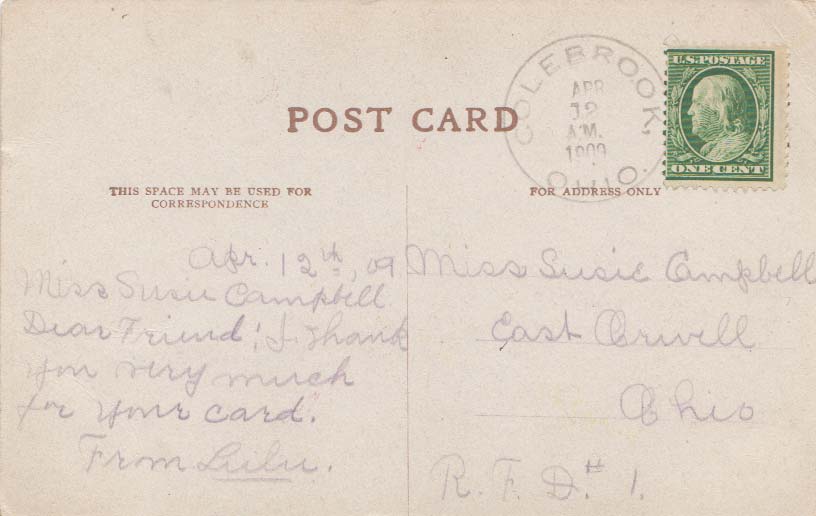 POST CARD
COLEBROOK,
OHIO.
APR
12
A.M.
1909
U.S. POSTAGE
ONE CENT
THIS SPACE MAY BE USED FOR
CORRESPONDENCE
FOR ADDRESS ONLY
Apr. 12th, 09
Miss Susie Campbell
Dear Friend; I thank
you very much
for your card.
From Lulu.
Miss Susie Campbell
East Orwell
Ohio
R. F. D. # 1.